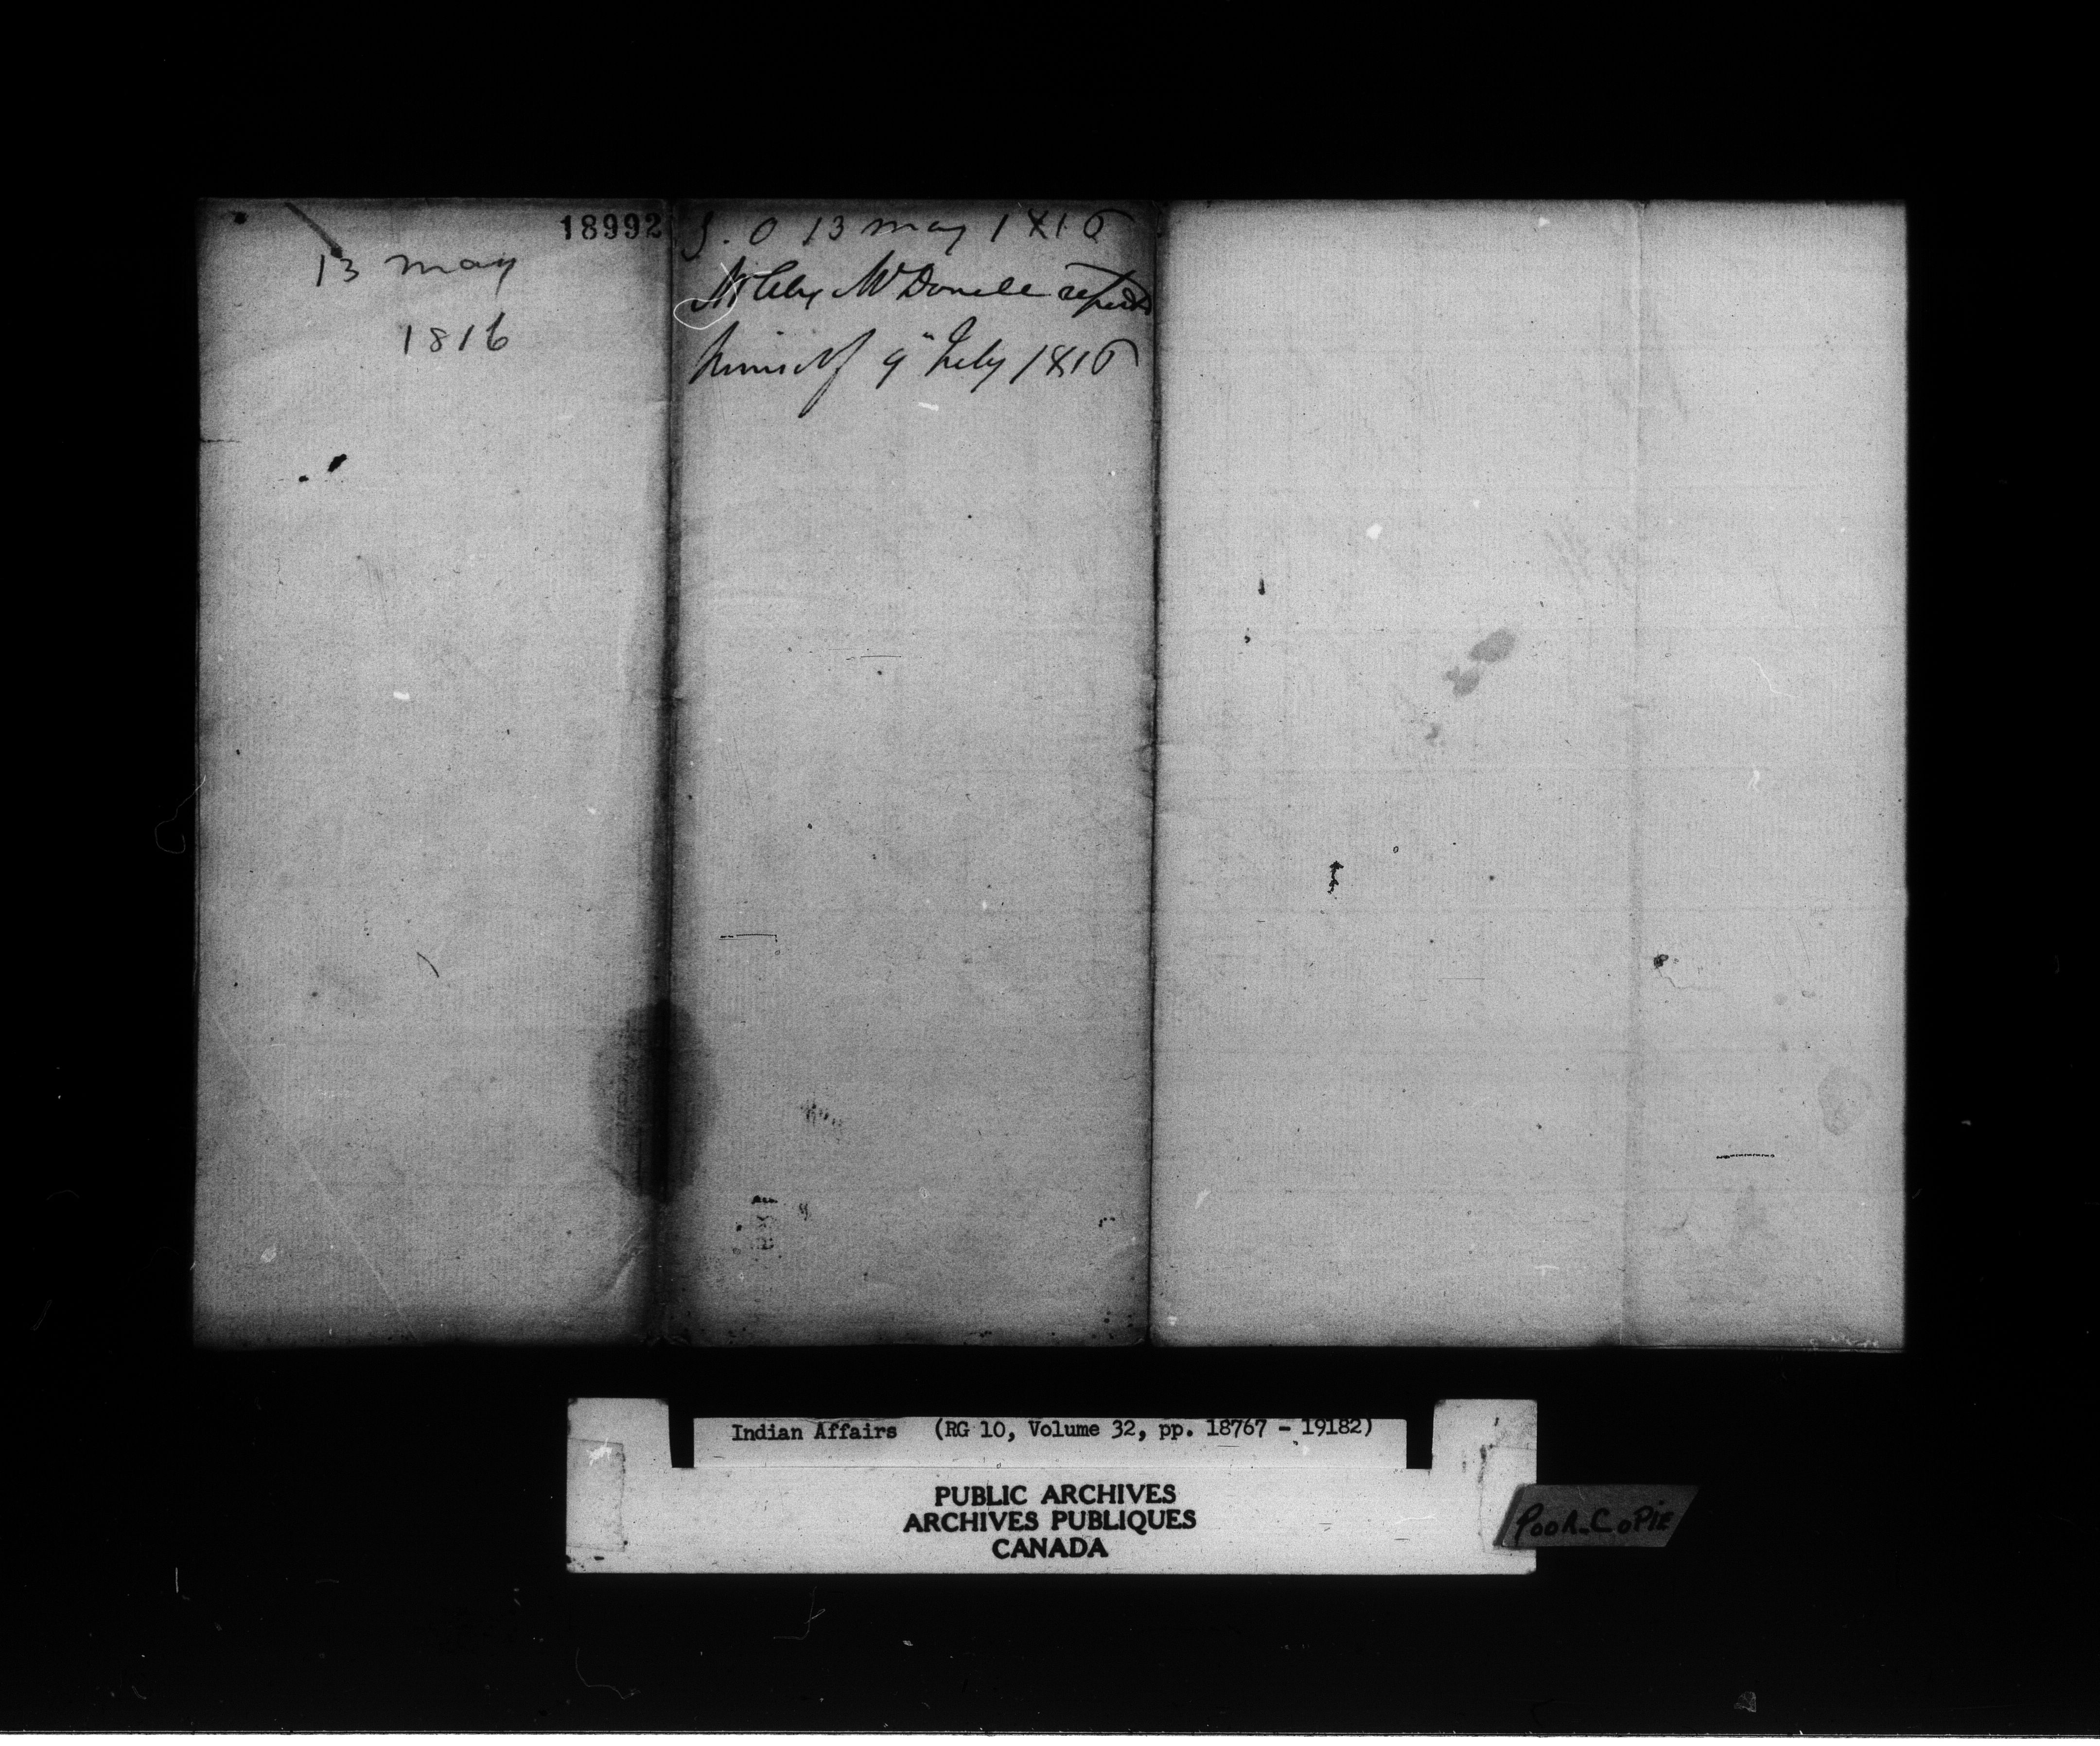 18992
13 may
1816
G. O 13 may 1816
Mr Alexr McDonell reports
himself 9" July 1816
Indian Affairs (RG 10, Volume 32, pp. 18767 - 19182)
PUBLIC ARCHIVES
ARCHIVES PUBLIQUES
CANADA
POOR-COPIE